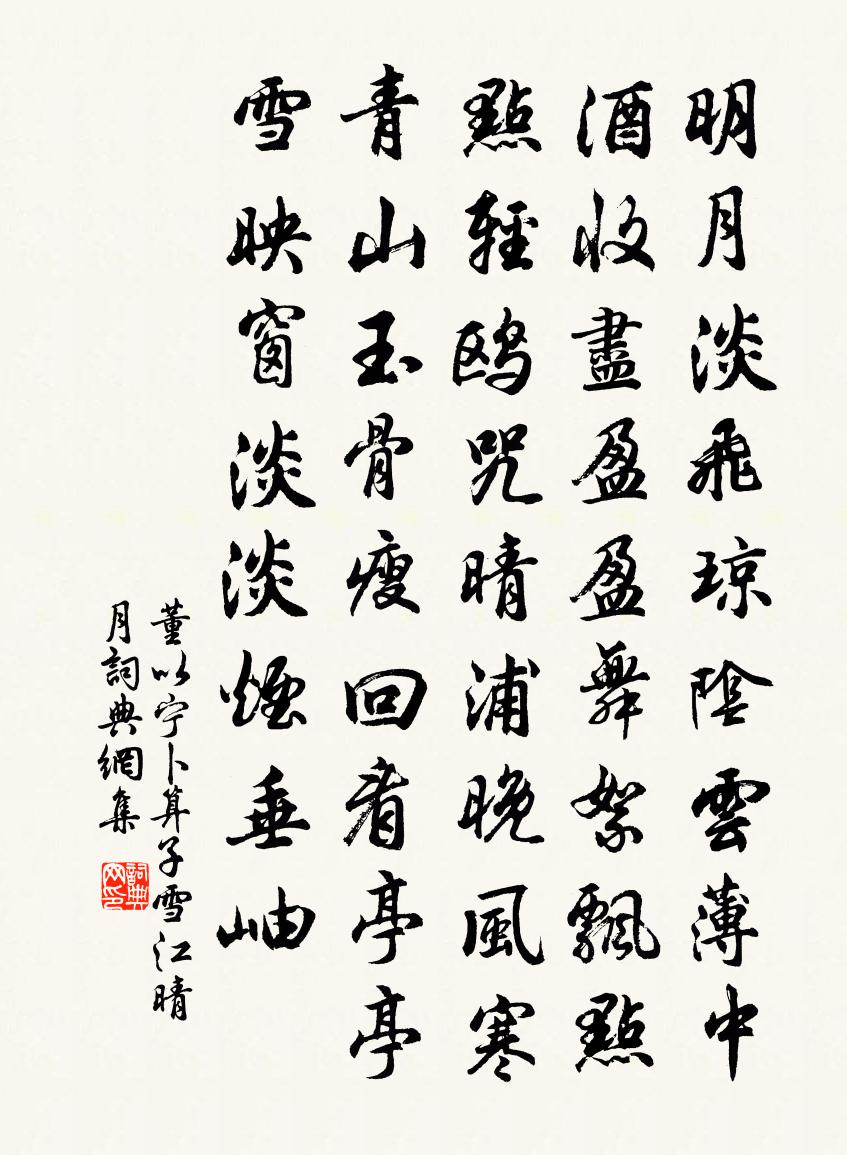 明月淡飛琼陰雲薄中
酒收盡盈盈舞絮飄點
點輕鷗咒晴浦晚風寒
青山玉骨瘦回看亭亭
雪映窗淡淡煙垂岫
董以宁卜算子雪江晴
月詞典網集
詞典网印